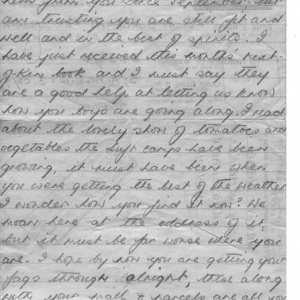 from you since September. but
am trusting you are still fit and
well and in the best of spirits. I
have just received this month's next-
of-kin book and I must say they
are a good help at letting us know
how you boys are going along. I read
about the lovely show of tomatoes and
vegetables the camps have been
growing, it must have been when
you were getting the best of the weather
I wonder how you find it now? We
moan here at the coldness of it.
but it must be far worse where you
are. I hope by now you are getting your
fags through alright, these along
with your mail & parcels are all you